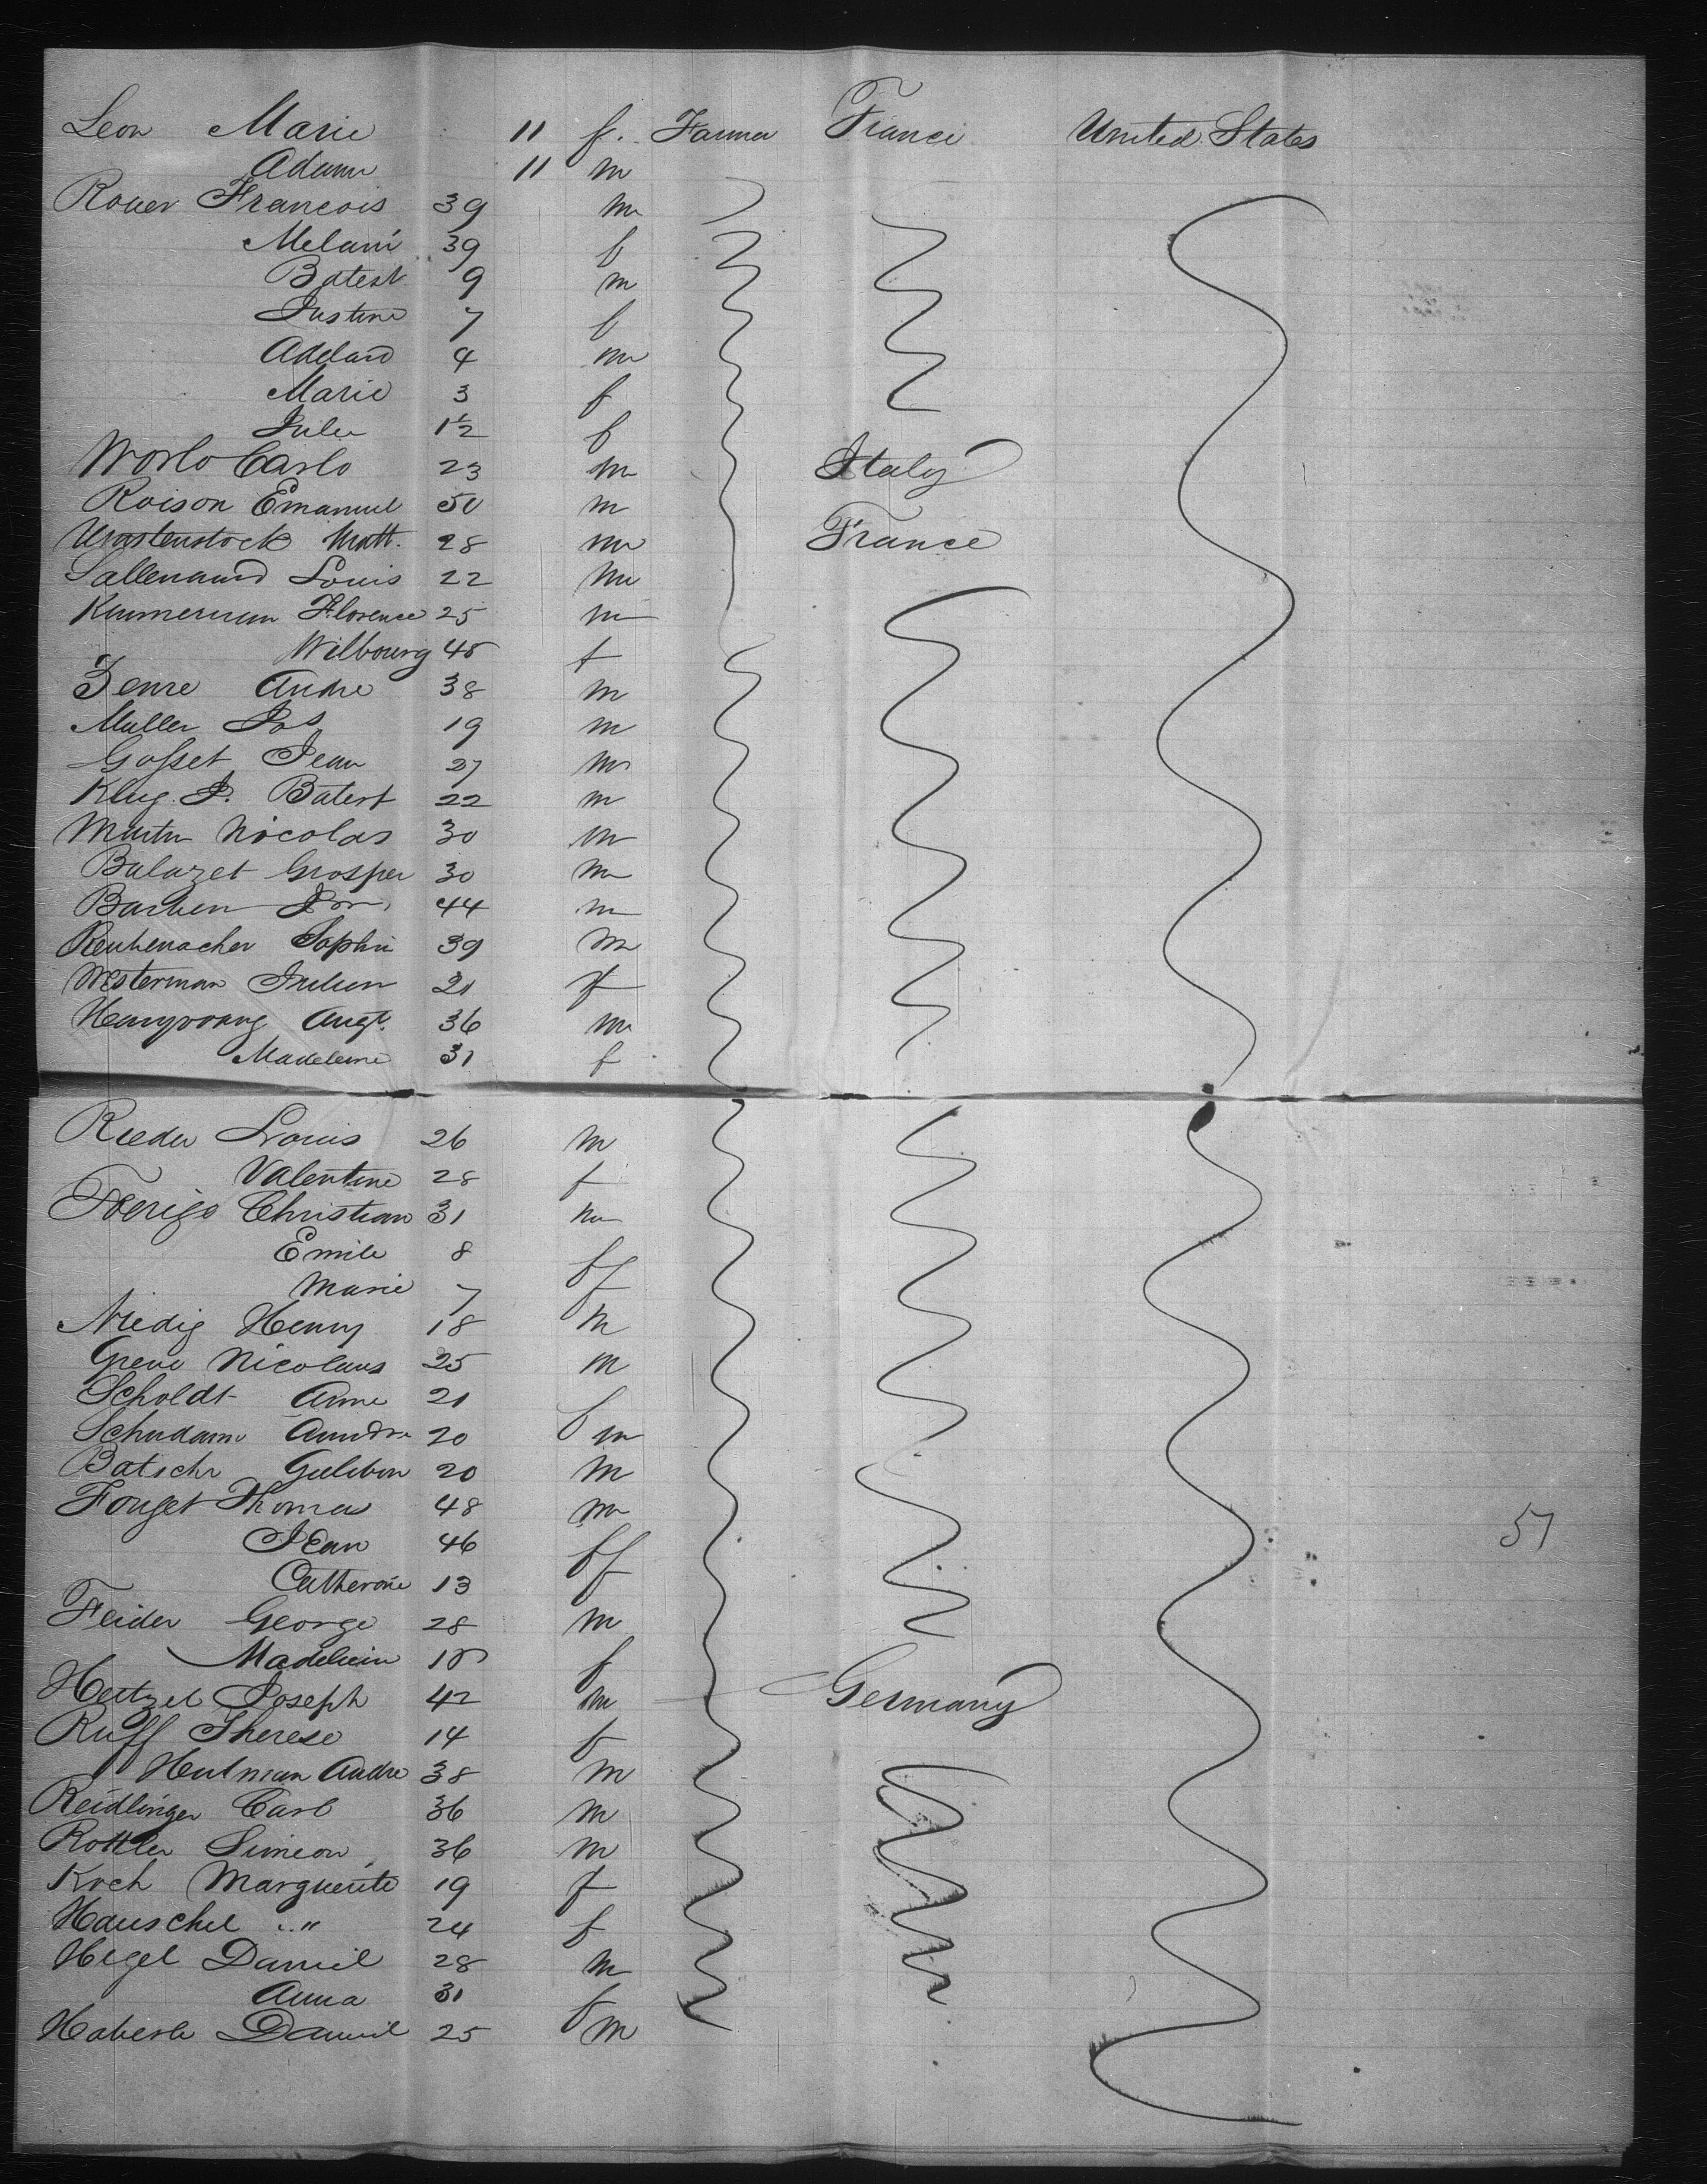 Leon Marie 11 f. Farmer France United States
Adam 11 m
Rouer Francois 39 m
Melani 39 f
Batest 9 m
Justine 7 f
Adelard 4 m
Marie 3 f
Jules 1½ f
Worlo Carlo 23 m Italy
Roison Emanuel 50 m
Matt. 28 m France
Sallenaund Louis 22 m
Florence 25 m
Wilbourg 45 f
Andre 38 m
Muller Jos 19 m
Gosset Jean 27 m
Klug J. Batest 22 m
Martin Nicolas 30 m
Balazet Grosper 30 m
Barben 44 m
Sophie 39 m
Westerman Julien 21 f
Augt. 36 m
Madeleine 31 f
Rieder Louis 26 m
Valentine 28 f
Christian 31 m
Emile 8 f
Marie 7 f
Niedig Henry 18 m
Greve Nicolaus 25 m
Scholdt Anne 21 f
Schudam 20 m
Batschi 20 m
Fouget Thomas 48 m
Jean 46 f
Catherine 13 f
Feider George 28 m
Madelein 18 f
Hertzel Joseph 42 m Germany
Ruff Therese 14 f
Hutman Andre 38 m
Reidlinger Carl 36 m
Rottler Simeon 36 m
Koch Marguerite 19 f
Hauschel " 24 f
Hegel Daniel 28 m
Anna 31 f
Haberle Daniel 25 m
57